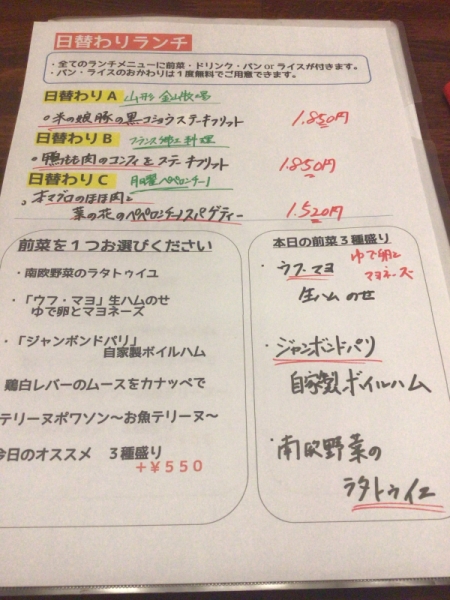 日替わりランチ
・全てのランチメニューに前菜・ドリンク・パン or ライスが付きます。
・パン・ライスのおかわりは１度無料でご用意できます。
日替わりA 山形 金山牧場
○米の娘豚の黒コショウステーキフリット 1.850円
日替わりB フランス郷土料理
・鴨もも肉のコンフィとステーキフリット 1850円
日替わりC 日曜ペペロンチーノ
、本マグロのほほ肉と
菜の花のペペロンチーノスパゲティー 1.520円
前菜を１つお選びください
・南欧野菜のラタトゥイユ
・「ウフ・マヨ」生ハムのせ
ゆで卵とマヨネーズ
・「ジャンボンドパリ」
自家製ボイルハム
鶏白レバーのムースをカナッペで
テリーヌポワソン～お魚テリーヌ～
今日のオススメ ３種盛り
＋￥５５０
本日の前菜３種盛り
・ウフ・マヨ ゆで卵と
マヨネーズ
生ハムのせ
・ジャンボンドパリ
自家製ボイルハム
・南欧野菜の
ラタトゥイユ